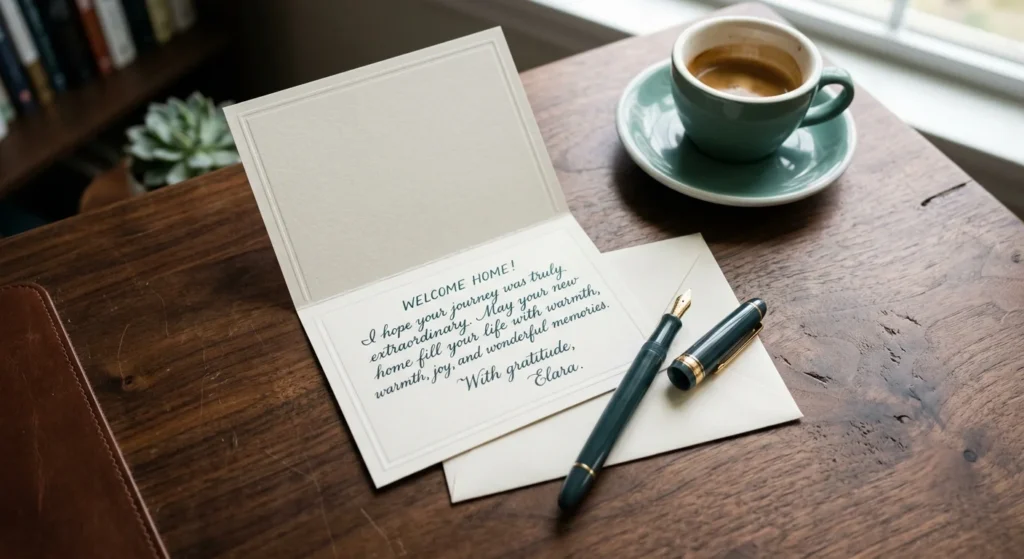 WELCOME HOME!
I hope your journey was truly
extraordinary. May your new
home fill your life with warmth,
warmth, joy, and wonderful memories.
With gratitude,
Elara.